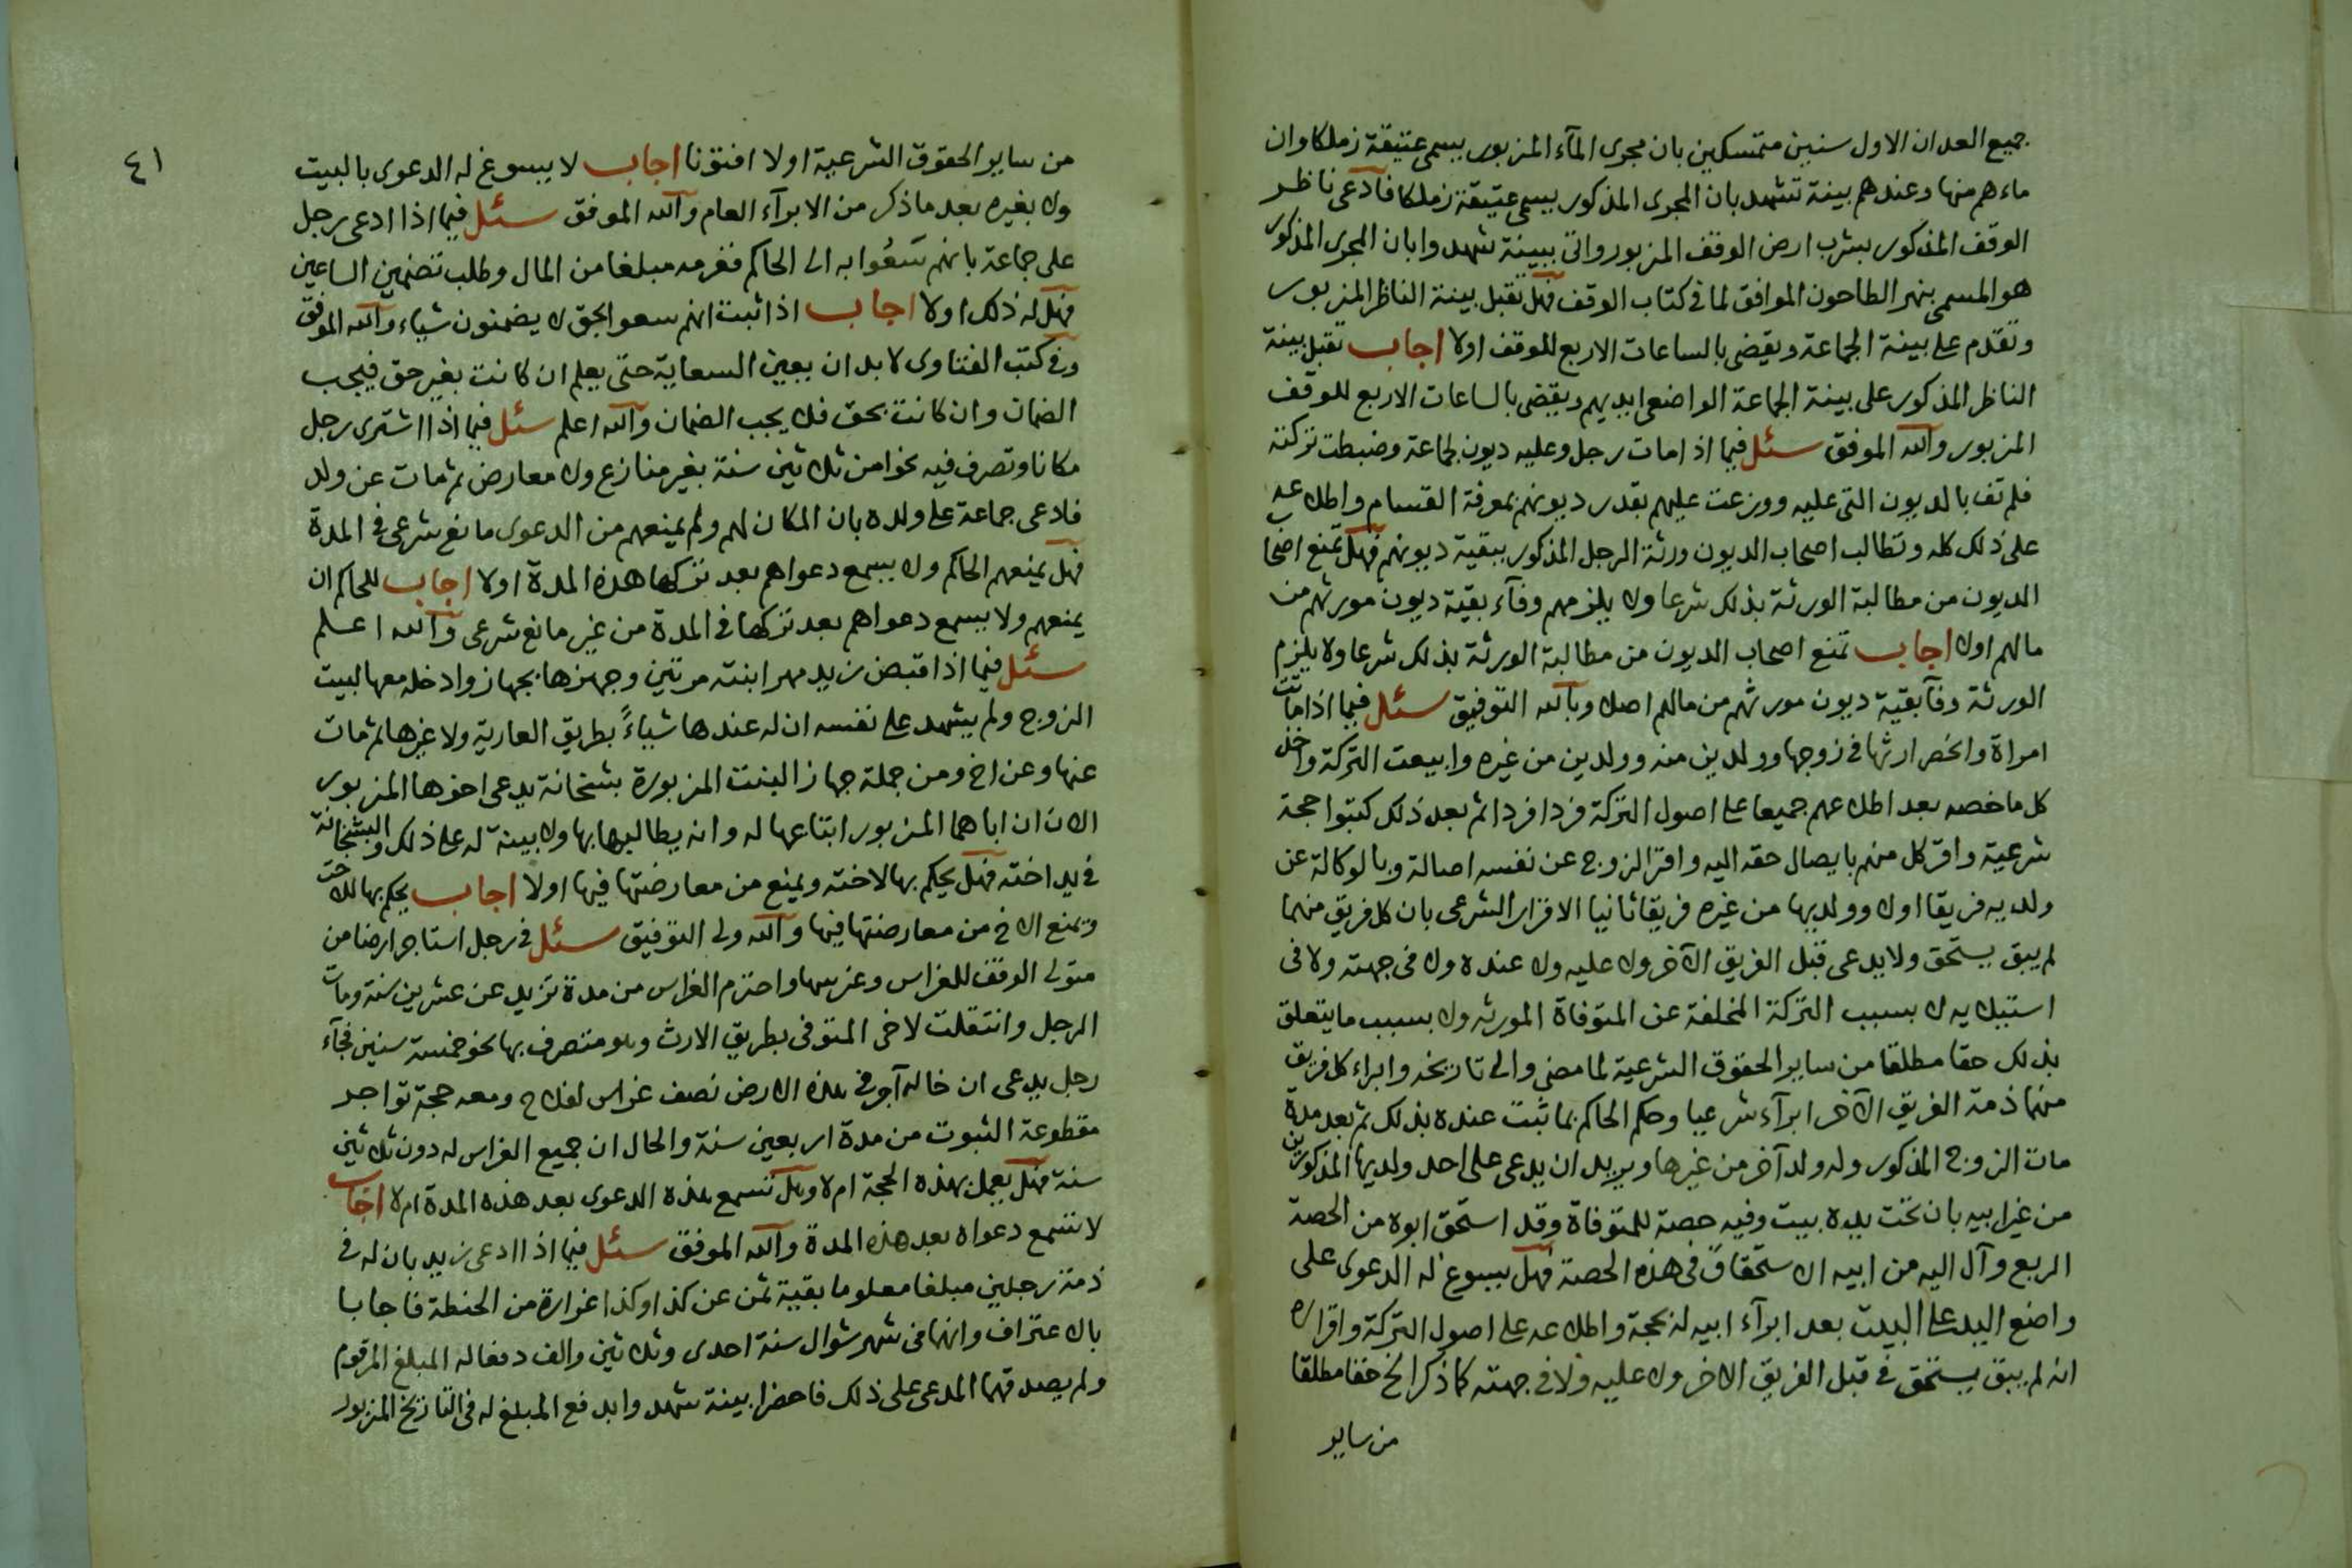 جميع العدان الاول سنين متمسكين بان مجرى المآء المزبور يسمى عتيقة زملكا وان
ماءهم منها وعندهم بينة تشهد بان المجرى المذكور يسمى عتيقة زملكا فادعى ناظر
الوقف المذكور بشرب ارض الوقف المزبور واتى ببينة شهدوا بان المجرى المذكور
هو المسمى بنهر الطاحون الموافق لما فى كتاب الوقف فهل تقبل بينة الناظر المزبور
وتقدم على بينة الجماعة ويقضى بالساعات الاربع للوقف اولا اجاب تقبل بينة
الناظر المذكور على بينة الجماعة الواضعى ايديهم ويقضى بالساعات الاربع للوقف
المزبور والله الموفق سئل فيما اذا مات رجل وعليه ديون لجماعة وضبطت تركته
فلم تف بالديون التى عليه ووزعت عليهم بقدر ديونهم بمعرفة القسام واطلاعه
على ذلك كله وتطالب اصحاب الديون ورثة الرجل المذكور ببقية ديونهم فهل تمنع اصحا
الديون من مطالبة الورثة بذلك شرعا ولا يلزمهم وفآء بقية ديون مورثهم من
مالهم اولا اجاب تمنع اصحاب الديون من مطالبة الورثة بذلك شرعا ولا يلزم
الورثة وفآ بقية ديون مورثهم من مالهم اصلا وبالله التوفيق سئل فيما اذا ماتت
امراة وانحصر ارثها فى زوجها وولدين منه وولدين من غيره وابيعت التركة واخذ
كل ما خصه بعد اطلاعهم جميعا على اصول التركة فردا فردا ثم بعد ذلك كتبوا حجة
شرعية واقر كل منهم بايصال حقه اليه واقر الزوج عن نفسه اصالة وبالوكالة عن
ولديه فريقا اولا وولديها من غيره فريقا ثانيا الاقرار الشرعى بان كل فريق منهما
لم يبق يستحق ولا يدعى قبل الفريق الآخر ولا عليه ولا عنده ولا فى جهته ولا فى
استيلايه لا بسبب التركة المخلفة عن المتوفاة المورثه ولا بسبب ما يتعلق
بذلك حقا مطلقا من ساير الحقوق الشرعية لما مضى والى تاريخه وابراء كل فريق
منهما ذمة الفريق الآخر ابرآء شرعيا وحكم الحاكم بما ثبت عنده بذلك ثم بعد مدة
مات الزوج المذكور وله ولد آخر من غيرها ويريد ان يدعى على احد ولديها المذكورين
من غير ابيه بان تحت يده بيت وفيه حصة للمتوفاة وقد استحق ابوه من الحصة
الربع وآل اليه من ابيه الاستحقاق فى هذه الحصة فهل يسوغ له الدعوى على
واضع اليد على البيت بعد ابرآء ابيه له بحجة واطلاعه على اصول التركة واقراره
انه لم يبق يستحق فى قبل الفريق الاخر ولا عليه ولا فى جهته كما ذكر الخ حقا مطلقا
من ساير
٤١
من ساير الحقوق الشرعية اولا افتونا اجاب لا يسوغ له الدعوى بالبيت
ولا بغيره بعد ما ذكر من الابرآء العام والله الموفق سئل فيما اذا ادعى رجل
على جماعة بانهم سعوا به الى الحاكم فغرمه مبلغا من المال وطلب تضمين الساعين
فهل له ذلك اولا اجاب اذا ثبت انهم سعوا بحق لا يضمنون شياء والله الموفق
وفى كتب الفتاوى لا بد ان يعين السعاية حتى يعلم ان كانت بغير حق فيجب
الضمان وان كانت بحق فلا يجب الضمان والله اعلم سئل فيما اذا اشترى رجل
مكانا وتصرف فيه نحوا من ثلاثين سنة بغير منازع ولا معارض ثم مات عن ولد
فادعى جماعة على ولده بان المكان لهم ولم يمنعهم من الدعوى مانع شرعى فى المدة
فهل يمنعهم الحاكم ولا يسمع دعواهم بعد تركها هذه المدة اولا اجاب للحاكم ان
يمنعهم ولا يسمع دعواهم بعد تركها فى المدة من غير مانع شرعى والله اعلم
سئل فيما اذا قبض زيد مهر ابنته مرتين وجهزها بجهاز وادخله معها لبيت
الزوج ولم يشهد على نفسه ان له عندها شياءً بطريق العارية ولا غيرها ثم مات
عنها وعن اخ ومن جملة جهاز البنت المزبورة بشخانة يدعى اخوها المزبور
الان ان اباهما المزبور ابتاعها له وانه يطالبها بها ولا بينة له على ذلك والبشخانة
فى يد اخته فهل يحكم بها لاخته ويمنع من معارضتها فيها اولا اجاب يحكم بها للاخت
وتمنع الاخ من معارضتها فيها والله ولى التوفيق سئل فى رجل استاجر ارضا من
متولى الوقف للغراس وغرسها واحترم الغراس من مدة تزيد عن عشرين سنة ومات
الرجل وانتقلت لاخى المتوفى بطريق الارث وهو متصرف بها نحو خمسة سنين فجآء
رجل يدعى ان خاله آجر فى هذه الارض نصف غراس لفلاح ومعه حجة تواجر
مقطوعة الثبوت من مدة اربعين سنة والحال ان جميع الغراس له دون ثلاثين
سنة فهل يعمل بهذه الحجة ام لا وهل تسمع هذه الدعوى بعد هذه المدة ام لا اجاب
لا تسمع دعواه بعد هذه المدة والله الموفق سئل فيما اذا ادعى زيد بان له فى
ذمة رجلين مبلغا معلوما بقية ثمن عن كذا وكذا غرارة من الحنطة فاجابا
بالاعتراف وانهما فى شهر شوال سنة احدى وثلاثين والف دفعا له المبلغ المرقوم
ولم يصدقهما المدعى على ذلك فاحضرا بينة شهدوا بدفع المبلغ له فى التاريخ المزبور